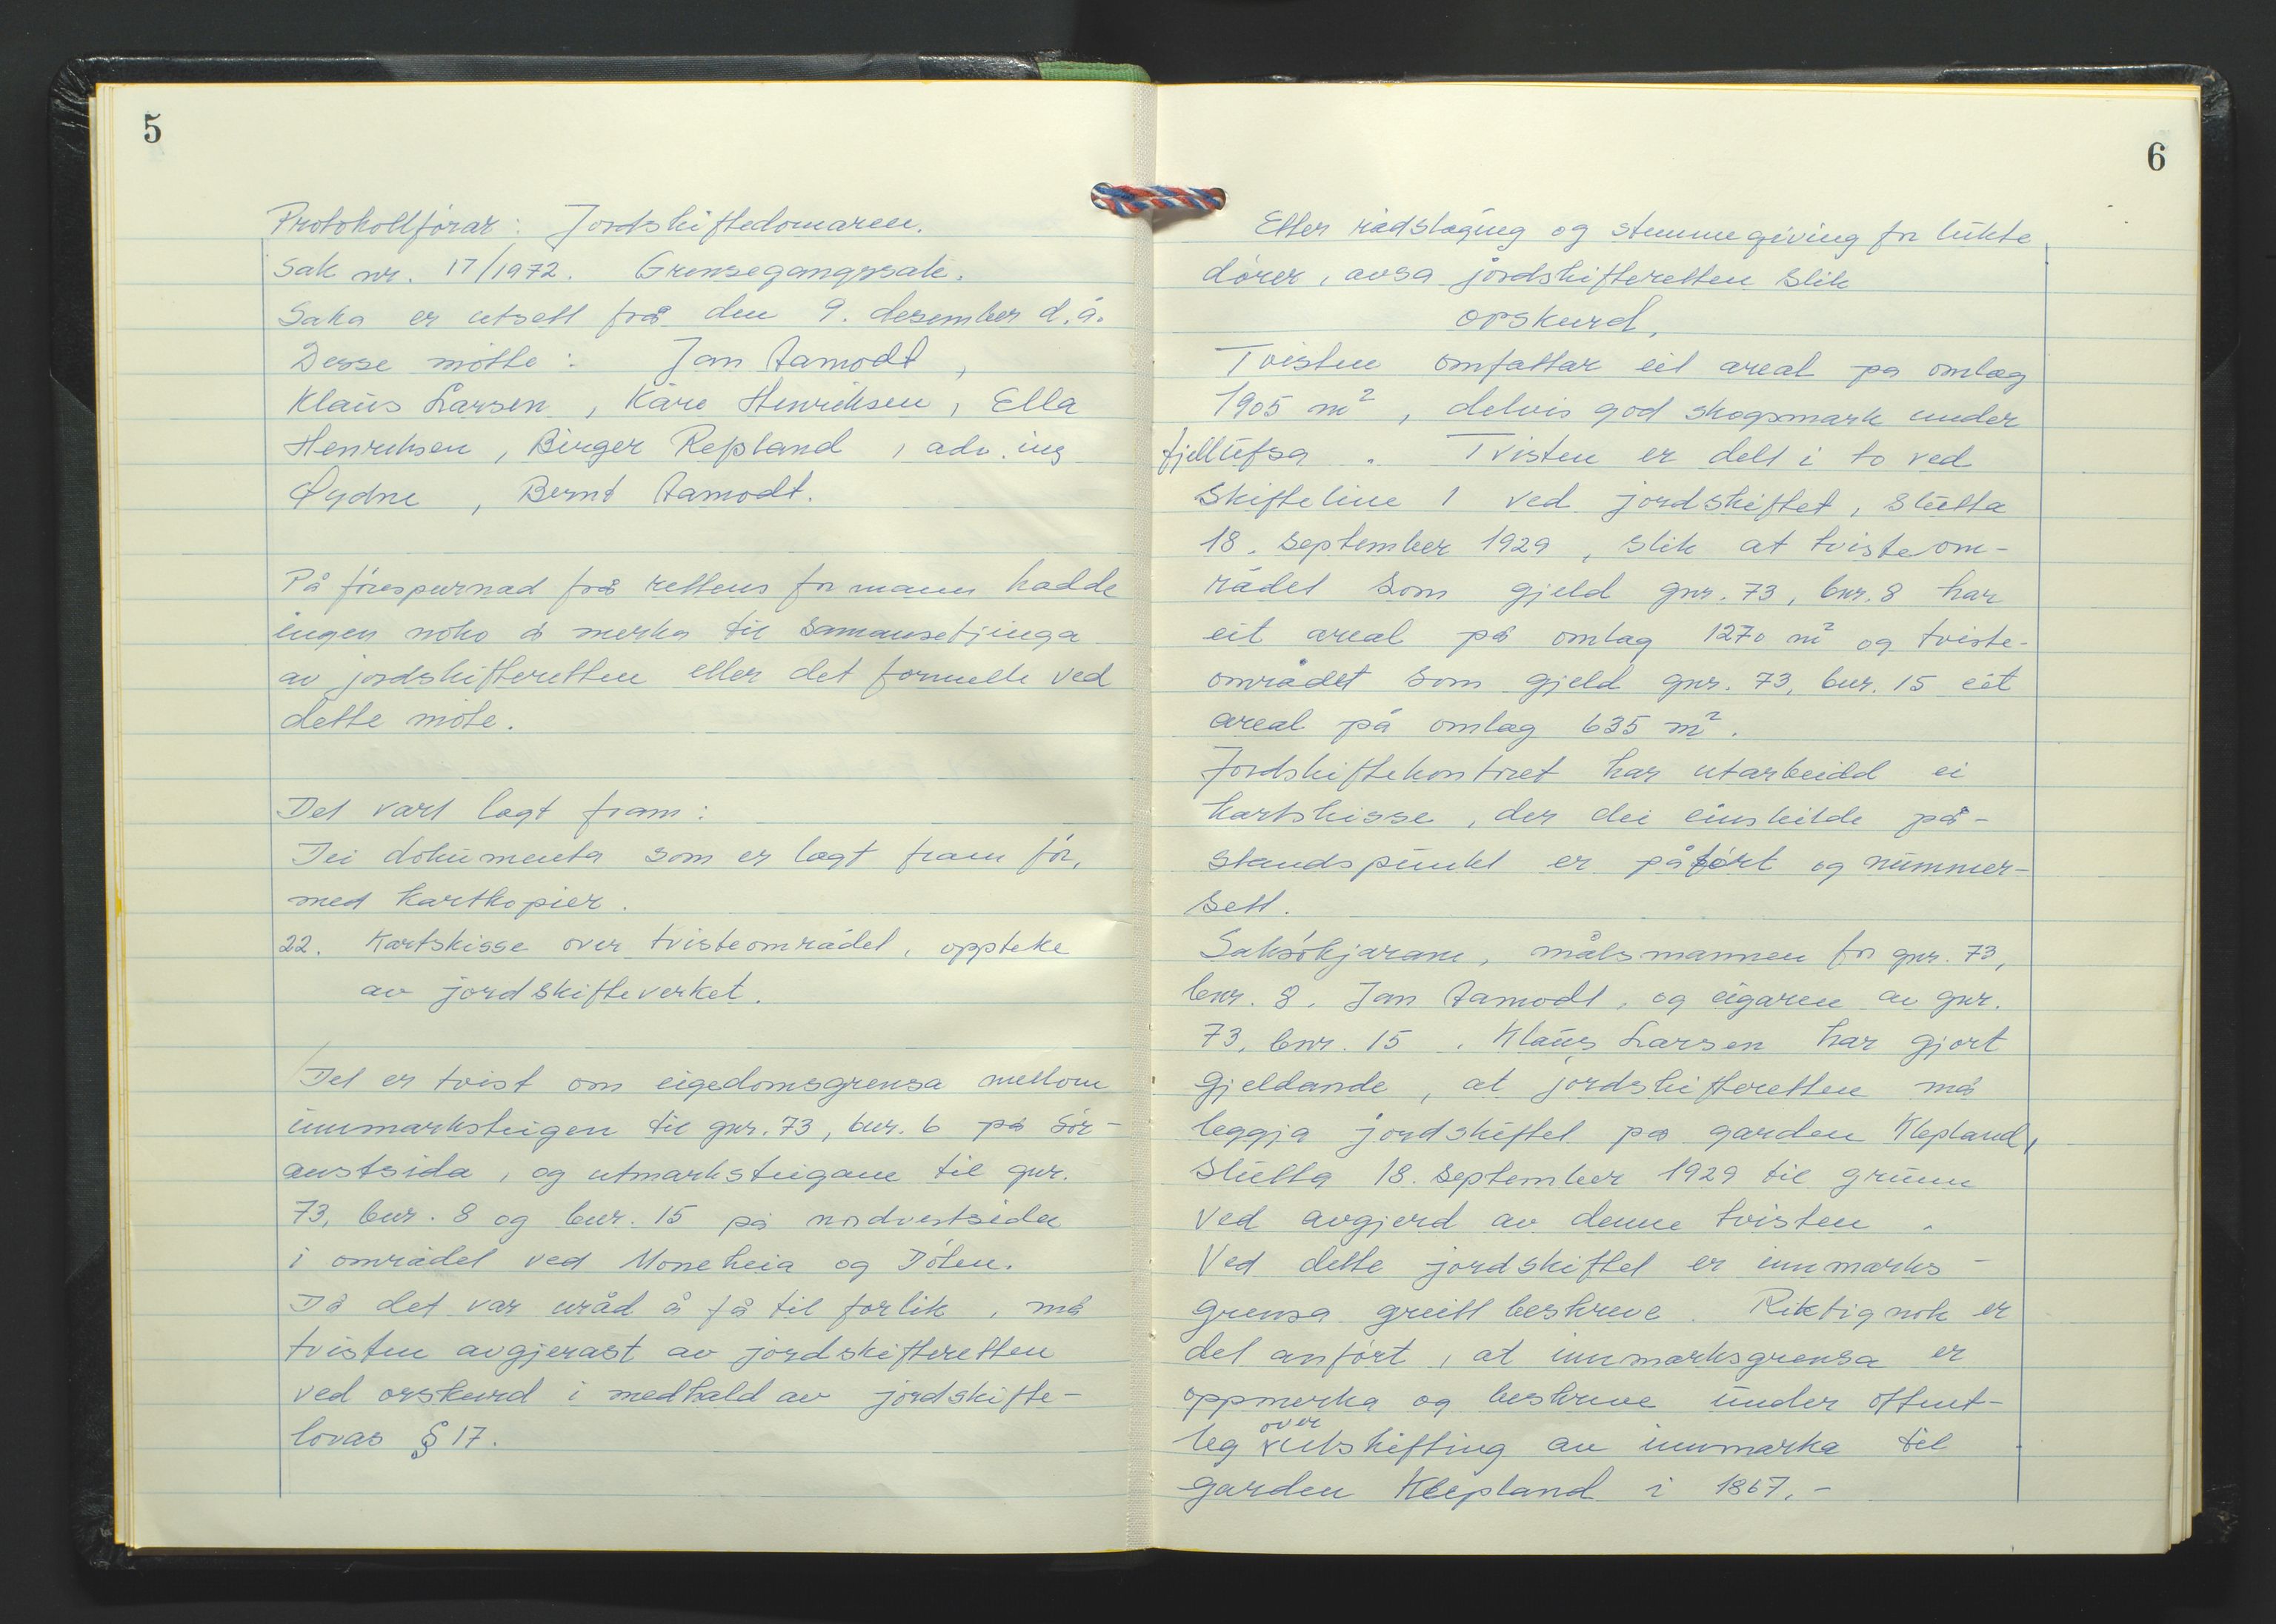 5
Protokollførar: Jordskiftedomaren.
Sak nr. 17/1972. Grensegangssak.
Saka er utsett frå den 9. desember d.å.
Desse møtte: Jan Aamodt,
Klaus Larsen, Kåre Henriksen, Ella
Henriksen, Birger Repland, adv. ing
Øydne, Bernt Aamodt.
På førespurnad frå rettens formann hadde
ingen noko å merka til samansetjinga
av jordskifteretten eller det formelle ved
dette møte.
Det vart lagt fram:
Dei dokumenta som er lagt fram før,
med kartkopier.
22. Kartskisse over tvisteområdet, oppteke
av jordskifteverket.
Det er tvist om eigedomsgrensa mellom
innmarksteigen til gnr. 73, bnr. 6 på sør-
austsida, og utmarksteigane til gnr.
73, bnr. 8 og bnr. 15 på nordvestsida
i området ved Moneheia og Dølen.
Då det var uråd å få til forlik, må
tvisten avgjerast av jordskifteretten
ved orskurd i medhald av jordskifte-
lovas § 17.
6
Etter rådslaging og stemmegiving for lukte
dører, avsa jordskifteretten slik
orskurd,
Tvisten omfattar eit areal på omlag
1905 m², delvis god skogsmark under
fjellufsa. Tvisten er delt i to ved
skifteline 1 ved jordskiftet, slutta
18. september 1929, slik at tvisteom-
rådet som gjeld gnr. 73, bnr. 8 har
eit areal på omlag 1270 m² og tviste-
området som gjeld gnr. 73, bnr. 15 eit
areal på omlag 635 m².
Jordskiftekontoret har utarbeidd ei
kartskisse, der dei einskilde på-
standspunkt er påført og nummer-
sett.
Saksøkjarane, målsmannen for gnr. 73,
bnr. 8, Jan Aamodt, og eigaren av gnr.
73, bnr. 15, Klaus Larsen har gjort
gjeldande, at jordskifteretten må
leggja jordskiftet på garden Klepland,
slutta 18. september 1929 til grunn
ved avgjerd av denne tvisten.
Ved dette jordskiftet er innmarks-
grensa greitt beskreve. Riktignok er
det anført, at innmarksgrensa er
oppmerka og beskreve under offent-
leg over utskifting av innmarka til
garden Klepland i 1867.-